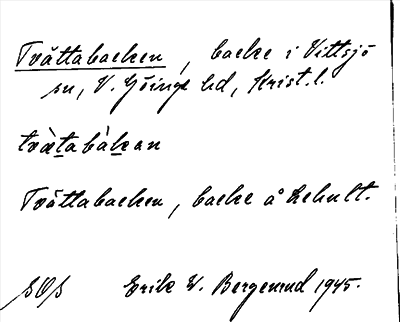 Tvättabacken, backe i Vittsjö
sn, V. Göinge hd, Krist. l.
tvätabàkan
Tvättabacken, backe å Rehult.
Erik W. Bergenrud 1945.